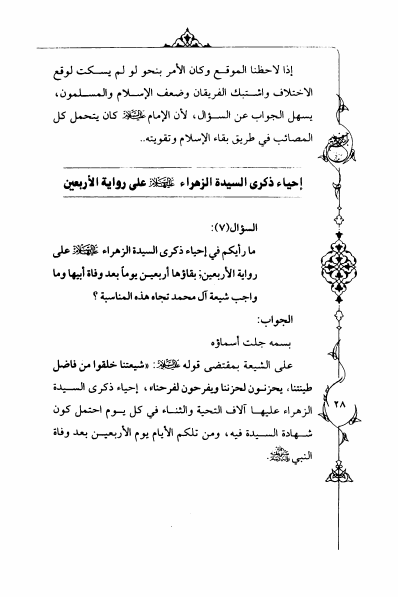 إذا لاحظنا الموقع وكان الأمر بنحو لو لم يسكت لوقع
الاختلاف واشتبك الفريقان وضعف الإسلام والمسلمون،
يسهل الجواب عن السؤال، لأن الإمام عليه السلام كان يتحمل كل
المصائب في طريق بقاء الإسلام وتقويته..
إحياء ذكرى السيدة الزهراء عليها السلام على رواية الأربعين
السؤال(٧):
ما رأيكم في إحياء ذكرى السيدة الزهراء عليها السلام على
رواية الأربعين؛ بقاؤها أربعين يوماً بعد وفاة أبيها وما
واجب شيعة آل محمد تجاه هذه المناسبة؟
الجواب:
بسمه جلت أسماؤه
على الشيعة بمقتضى قوله عليه السلام: «شيعتنا خلقوا من فاضل
طينتنا، يحزنون لحزننا ويفرحون لفرحنا»، إحياء ذكرى السيدة
الزهراء عليها آلاف التحية والثناء في كل يوم احتمل كون
شهادة السيدة فيه، ومن تلكم الأيام يوم الأربعين بعد وفاة
النبي ﷺ.
٢٨